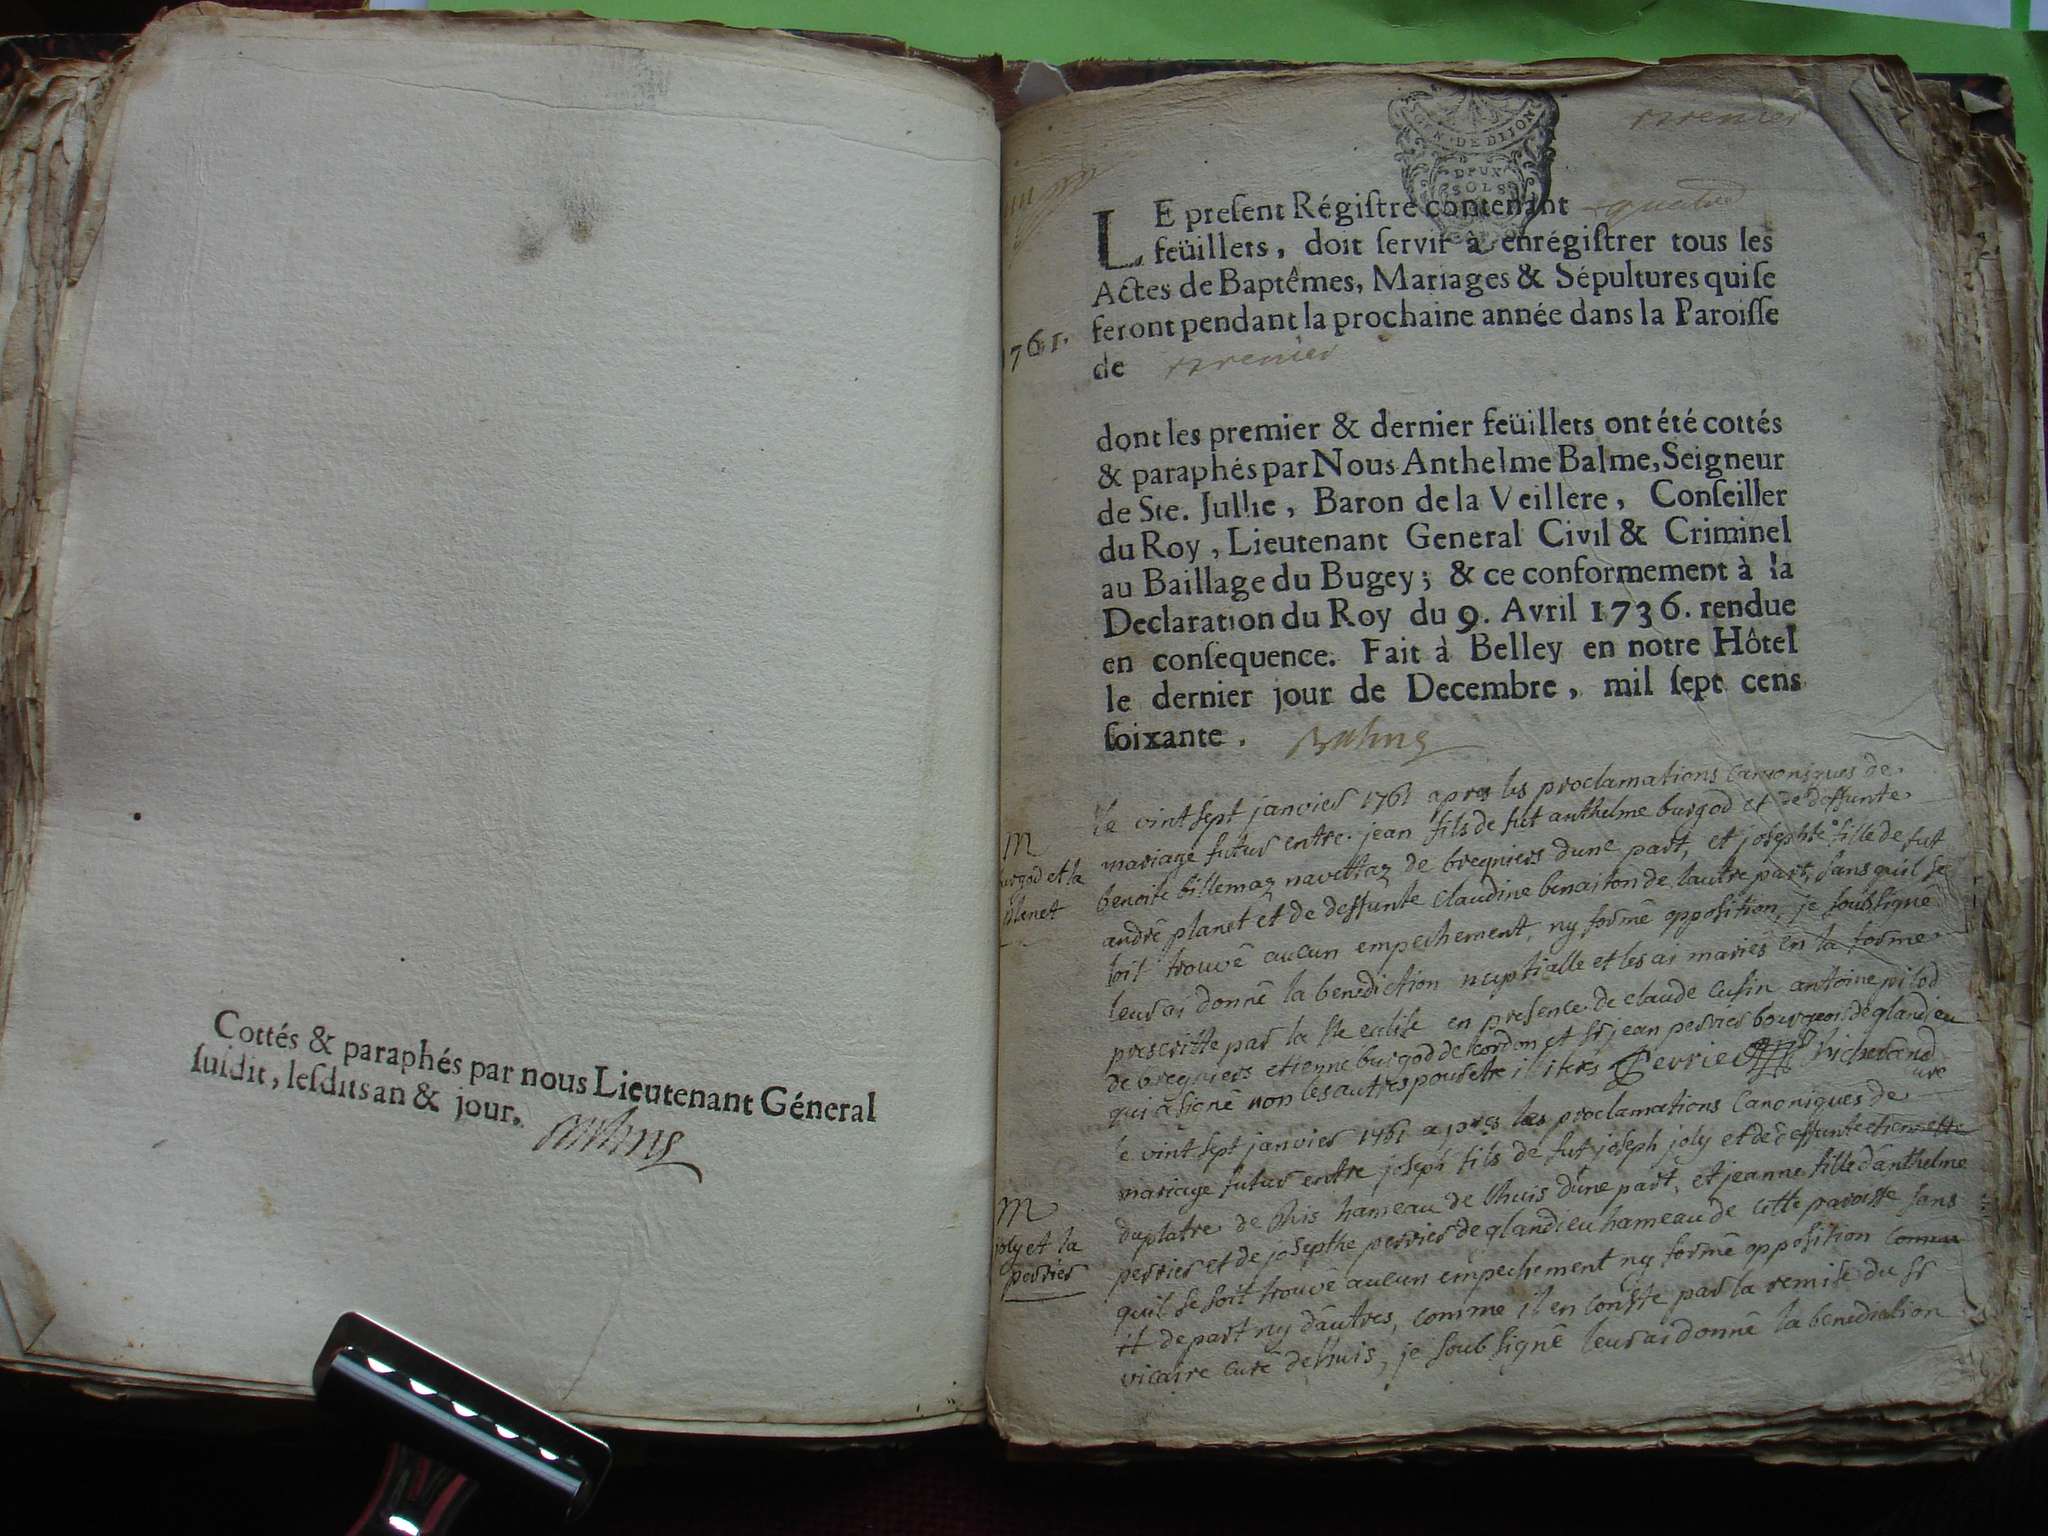 Cottés & paraphés par nous Lieutenant Géneral
susdit, lesdits an & jour.
GEN. DE DIJON
DEUX
SOLS
LE present Régistre contenant quatre
feüillets, doit servir à enrégistrer tous les
Actes de Baptêmes, Mariages & Sépultures qui se
feront pendant la prochaine année dans la Paroisse
de
1761.
dont les premier & dernier feüillets ont été cottés
& paraphés par Nous Anthelme Balme, Seigneur
de Ste. Jullie, Baron de la Veillere, Conseiller
du Roy, Lieutenant General Civil & Criminel
au Baillage du Bugey; & ce conformement à la
Declaration du Roy du 9. Avril 1736. rendue
en consequence. Fait à Belley en notre Hôtel
le dernier jour de Decembre, mil sept cens
soixante. Balme
M
burgod et la
planet
le vint sept janvier 1761 apres les proclamations canoniques de
mariage futur entre jean fils de fut anthelme burgod et de deffunte
benoite billemaz navettaz de bregniers dune part, et josephte fille de fut
andré planet et de deffunte claudine benaiton de lautre part, sans quil se
soit trouvé aucun empechement, ny formé opposition, je soubsigné
leur ai donné la benediction nuptialle et les ai mariés en la forme
prescritte par la ste eclise en presence de claude cusin antoine pilod
de bregniers etienne burgod de cordon et sr jean perrier bourgeois de glandieu
qui a signé non les autres pour etre iliterés Perrier Richerand
curé
M
joly et la
perrier
le vint sept janvier 1761 apres les proclamations canoniques de
mariage futur entre joseph fils de fut joseph joly et de deffunte etiennette
duplatre de hameau de lhuis dune part, et jeanne fille danthelme
perrier et de josepthe perrier de glandieu hameau de cette paroisse sans
quil se soit trouvé aucun empechement ny formé opposition
it de part ny dautres, comme il en conste par la remise du sr
vicaire curé delhuis, je soubsigné leur ai donné la benediction